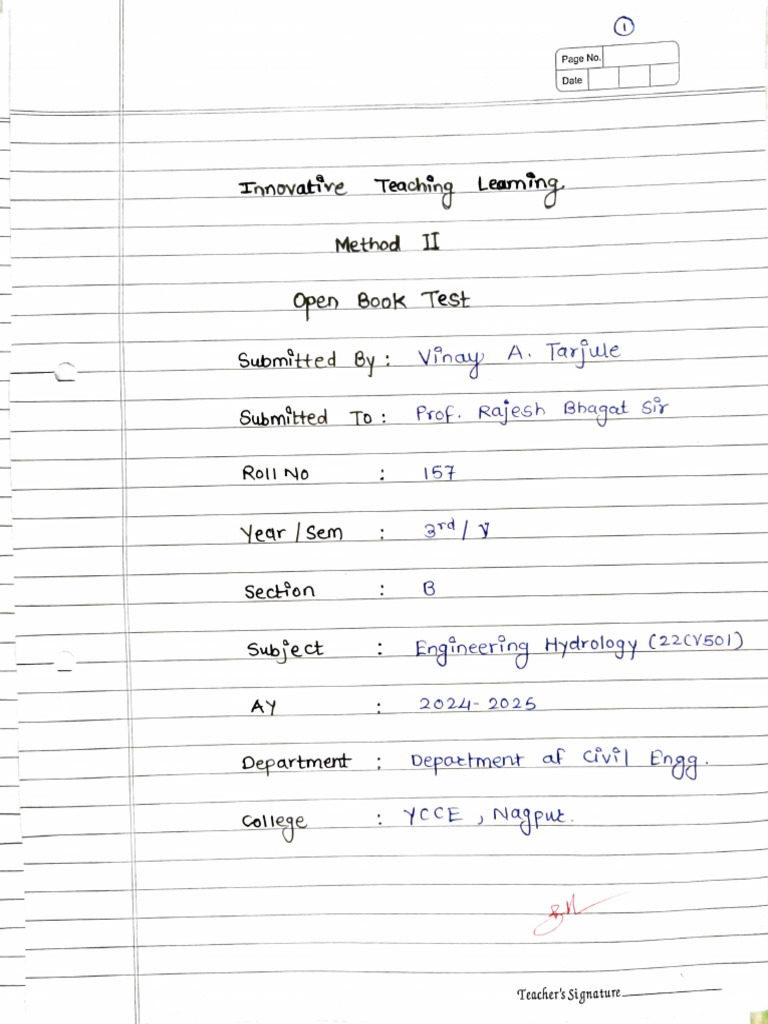 1
Page No.
Date
Innovative Teaching Learning
Method II
Open Book Test
Submitted By : Vinay A. Tarjule
Submitted To : Prof. Rajesh Bhagat Sir
Roll No : 157
Year / Sem : 3rd / V
Section : B
Subject : Engineering Hydrology (22CV501)
AY : 2024-2025
Department : Department of Civil Engg.
College : YCCE, Nagpur.
Teacher's Signature